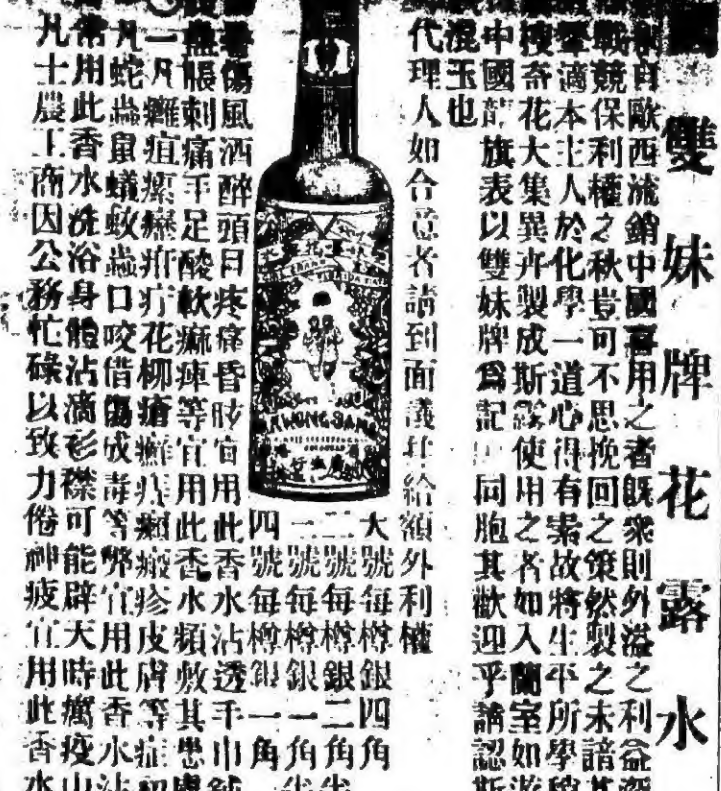 雙妹牌花露水
自歐西流銷中國喜用之者既衆則外溢之利益深
戰競保利權之秋豈可不思挽回之策然製之未諳其
適本主人於化學一道心得有素故將生平所學
搜奇花大集異卉製成斯露使用之者如入蘭室如遊
中國龍旗表以雙妹牌爲記同胞其歡迎乎請認斯
混玉也
代理人如合意者請到面議幷給額外利權
大號每樽銀四角
二號每樽銀二角半
號每樽銀一角半
四號每樽銀一角
KWONG SANG
傷風酒醉頭目疼痛昏眩宜用此香水沾透手巾
脹刺痛手足酸軟痲痺等宜用此香水頻敷其患處
一凡癰疽瘰癧疳疔花柳瘡癬疥癩癜疹皮膚等症初
凡蛇蟲鼠蟻蚊蟲口咬借傷成毒等弊宜用此香水沾
常用此香水洗浴身體沾滴衫襟可能辟天時癘疫山
凡士農工商因公務忙碌以致力倦神疲宜用此香水